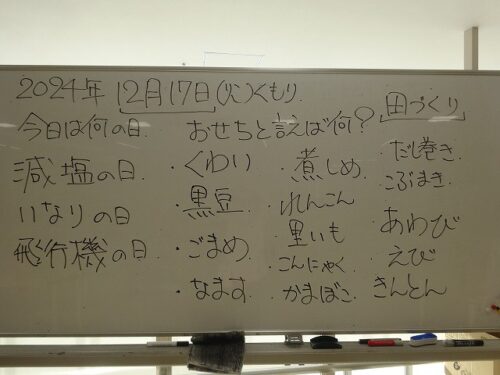 2024年 12月17日(火)くもり
今日は何の日
減塩の日
いなりの日
飛行機の日
おせちと言えば何?
・くわい
・黒豆
・ごまめ
・なます
・煮しめ
・れんこん
里いも
こんにゃく
・かまぼこ
田づくり
だし巻き
こぶまき
あわび
えび
きんとん